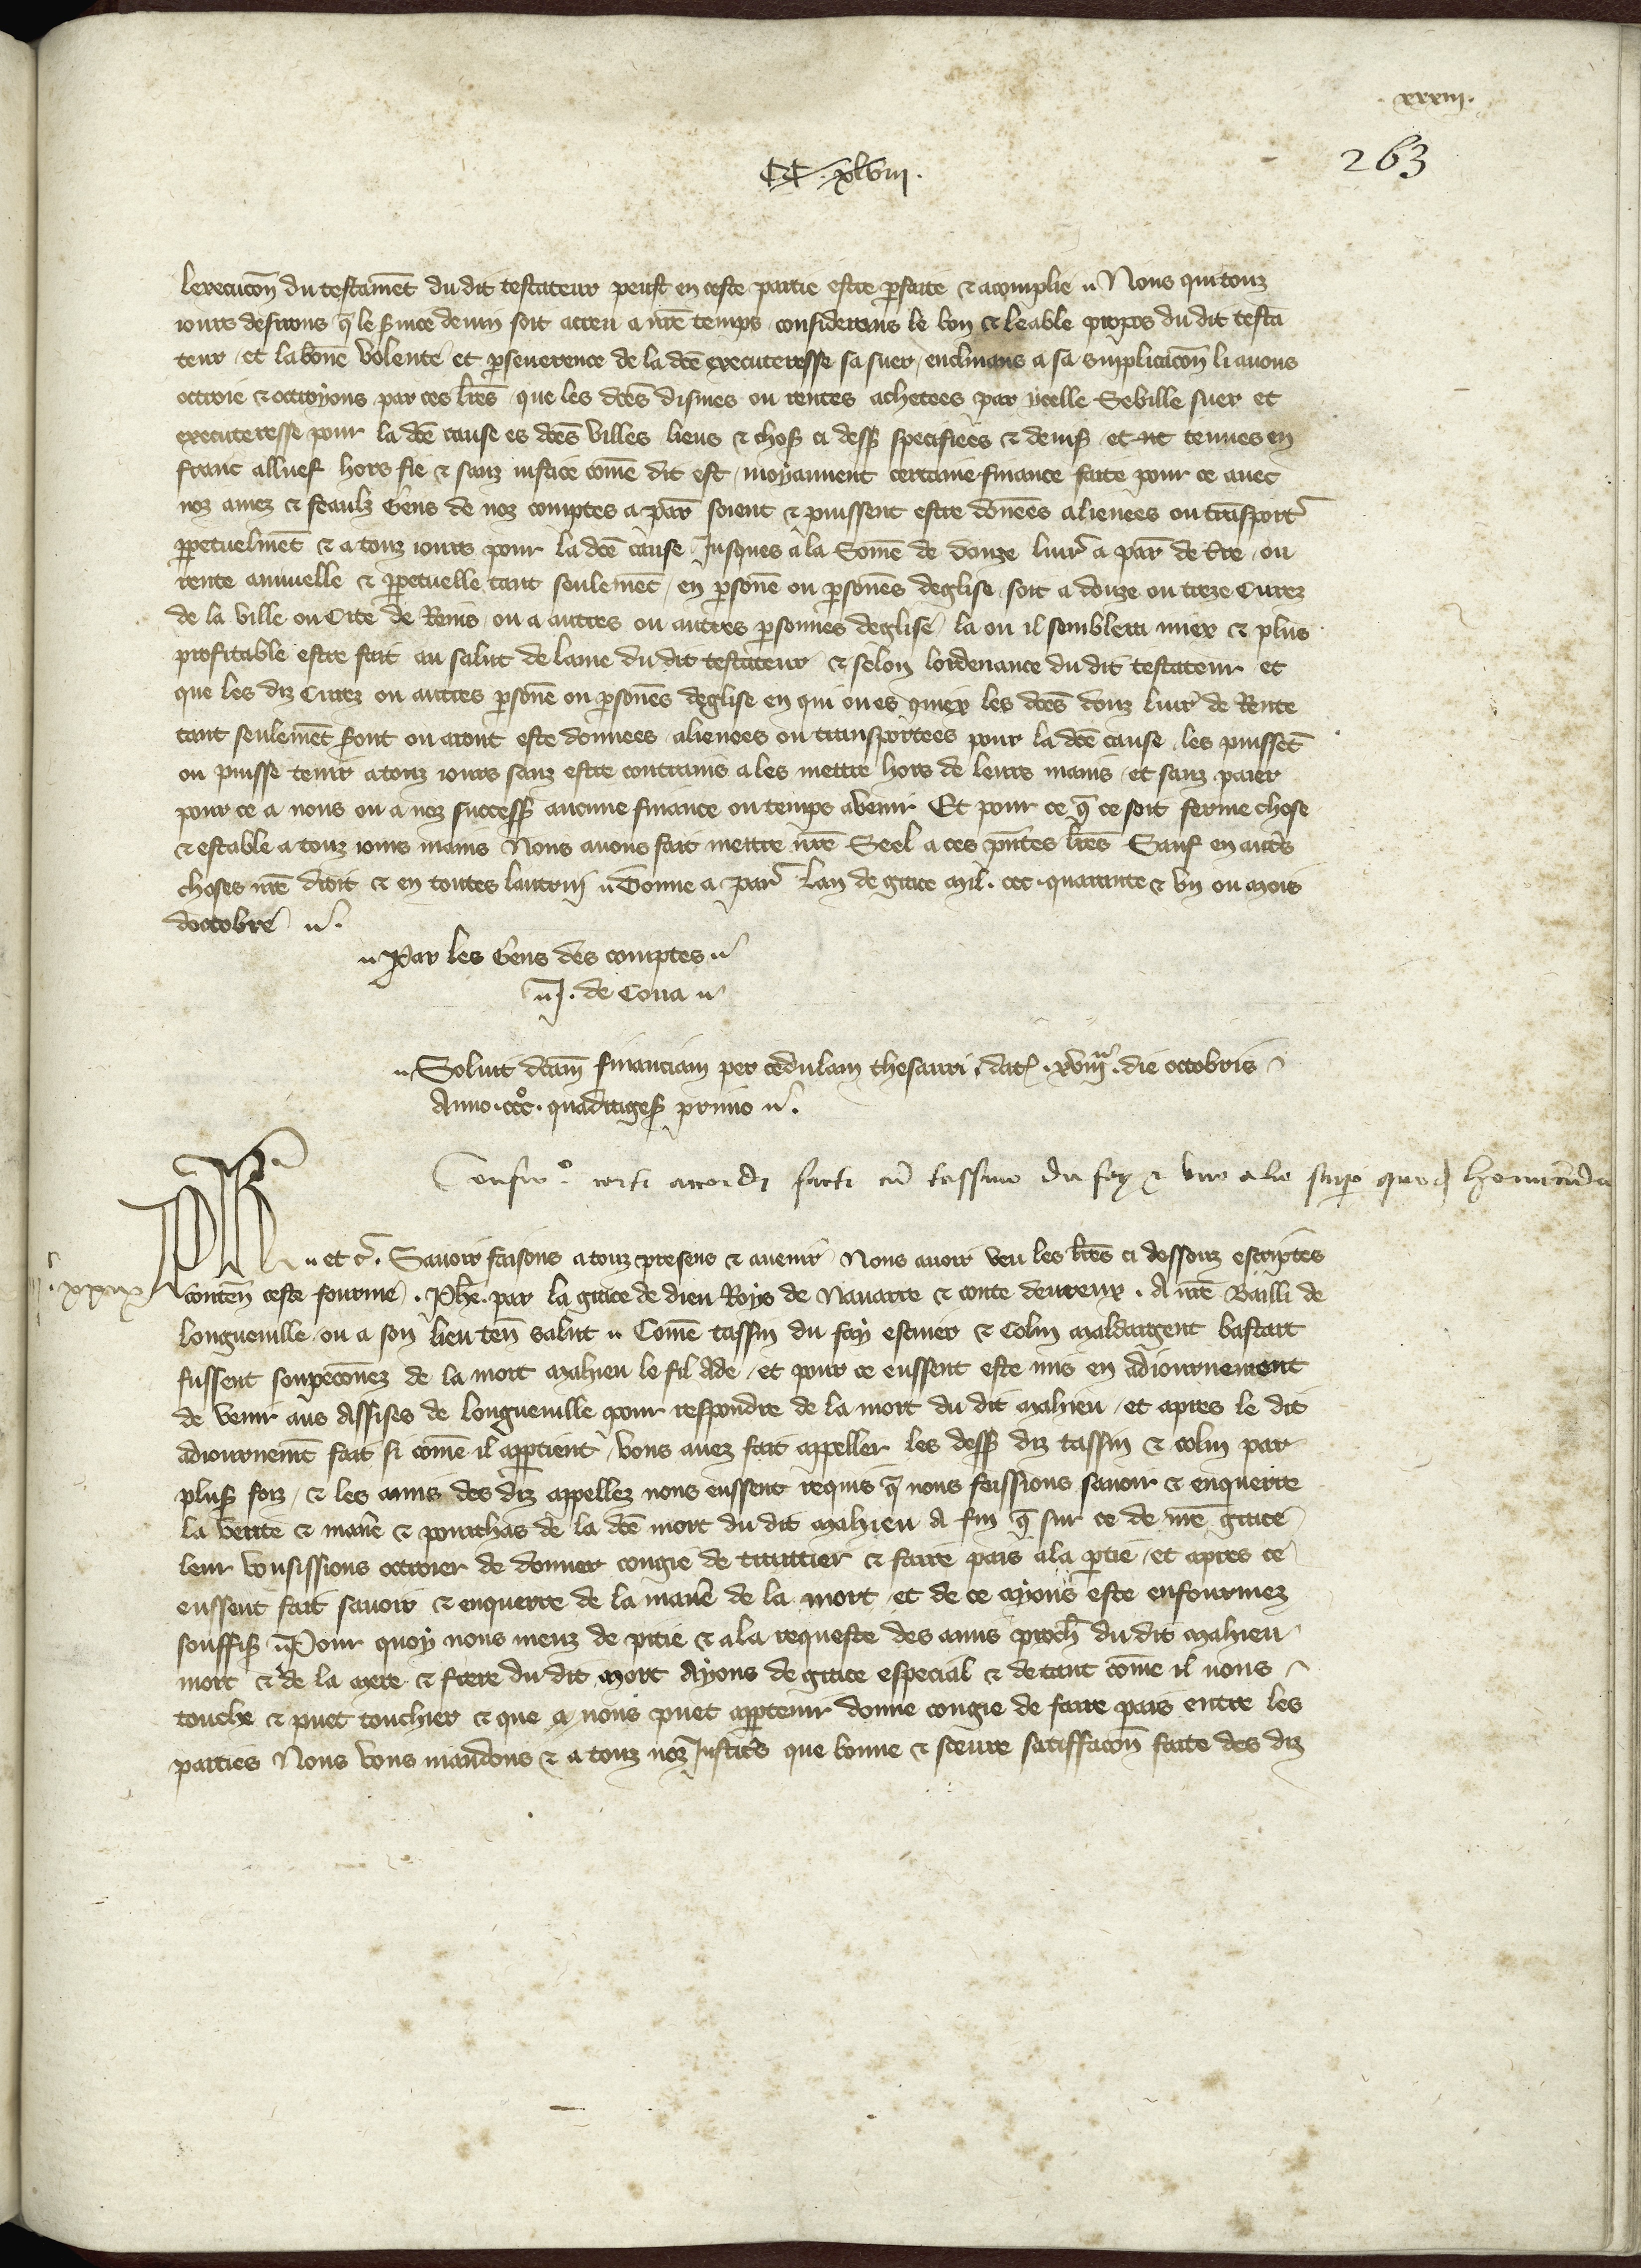 .xxxiii.
263
CC.xlviii.
lexecucōn du testamēt du dit testateur peust en ceste partie estre pfaite & acomplie Nous qui touz
iours desirons q̄ le seruice deuin soit acreu a nrē temps considerans le bon & leable propos du dit testa
teur et la bōne volente et pseuerence de la dcē executeresse sa suer enclinans a sa supplicacōn li auons
octroie & octroyons par ces lrēs que les dcēs dismes ou rentes achetees par ycelle Sebille suer et
executeresse pour la dcē cause es dcēs villes lieus & chos ci dess specifiees & deuis et tenues en
franc alluef hors fie & sanz iustice cōme dit est moyannent certaine finance faite pour ce auec
noz amez & feaulz Gens de noz comptes a par soient & puissent estre dōnees alienees ou trāsport
ppetuelmēt & a touz iours pour la dcē cause Jusques a la Somē de douze liur a par de ou
rente annuelle & ppetuelle tant seulemēt en psonē ou psonēs deglise soit a douze ou treze Curez
de la ville ou Cite de Reins ou a autres ou autres psonnes deglise la ou il semblera miex & plus
profitable estre fait au salut de lame du dit testateur & selon lordenance du dit testateur et
que les diz Curez ou autres psonē ou psonēs deglise en qui ou es quiex les dcēs douz liur de Rente
tant seulemēt seront ou aront este donnees alienees ou transportees pour la dcē cause les puissēt
ou puisse tenir a touz iours sanz estre contrains a les mettre hors de leurs mains et sanz paier
pour ce a nous ou a noz success aucune finance ou temps avenir Et pour ce q̄ ce soit ferme chose
& estable a touz iours mais Nous auons fait mettre nrē Seel a ces pntes lrēs Sauf en autrs
choses nrē droit & en toutes lautrui Donne a par Lan de grace mil. ccc. quarante & vn ou mois
doctobre
Par les Gens des comptes
J. de Cona
Soluit dcam financiam per cedulam thesauri dat .xviija. die octobris
Anno .ccco. quadrages primo
Confir certi accordi facti cū tassino du fay & vno alio super quod
Ph et c. Sauoir faisons a touz presens & auenir Nous auoir veu les lrēs ci dessouz escriptes
contēn ceste fourme . Phē. par la grace de dieu Roys de Nauarre & conte deureux . A nrē Bailli de
longueuille ou a son lieu tēn salut Comē tassin du fay escuier & Colin maldargent bastart
fussent soupeconez de la mort mahieu le fil Ade et pour ce eussent este mis en adiournement
de venir aus Assises de longueuille pour respondre de la mort du dit mahieu et apres le dit
adiournemēt fait si comē il apptient vous auez fait appeller les dess diz tassin & colin par
plus foiz & les amis des diz appellez nous eussent requis q̄ nous feissions sauoir & enquerre
la verite & manē & pourchas de la dcē mort du dit mahieu A fin q̄ sur ce de nrē grace
leur vousissions octroier de donner congie de traittier & faire pais a la ptie et apres ce
eussent fait sauoir & enquerre de la manē de la mort et de ce ayons este enfourmez
souffis Pour quoy nous meuz de pitie & a la requeste des amis proch du dit mahieu
mort & de la mere & frere du dit mort Ayons de grace especial & de tant cōme il nous
touche & puet touchier & que a nous puet appartenir donne congie de faire pais entre les
parties Nous vous mandons & a touz noz Justics que bonne & seeure satiffacōn faite des diz